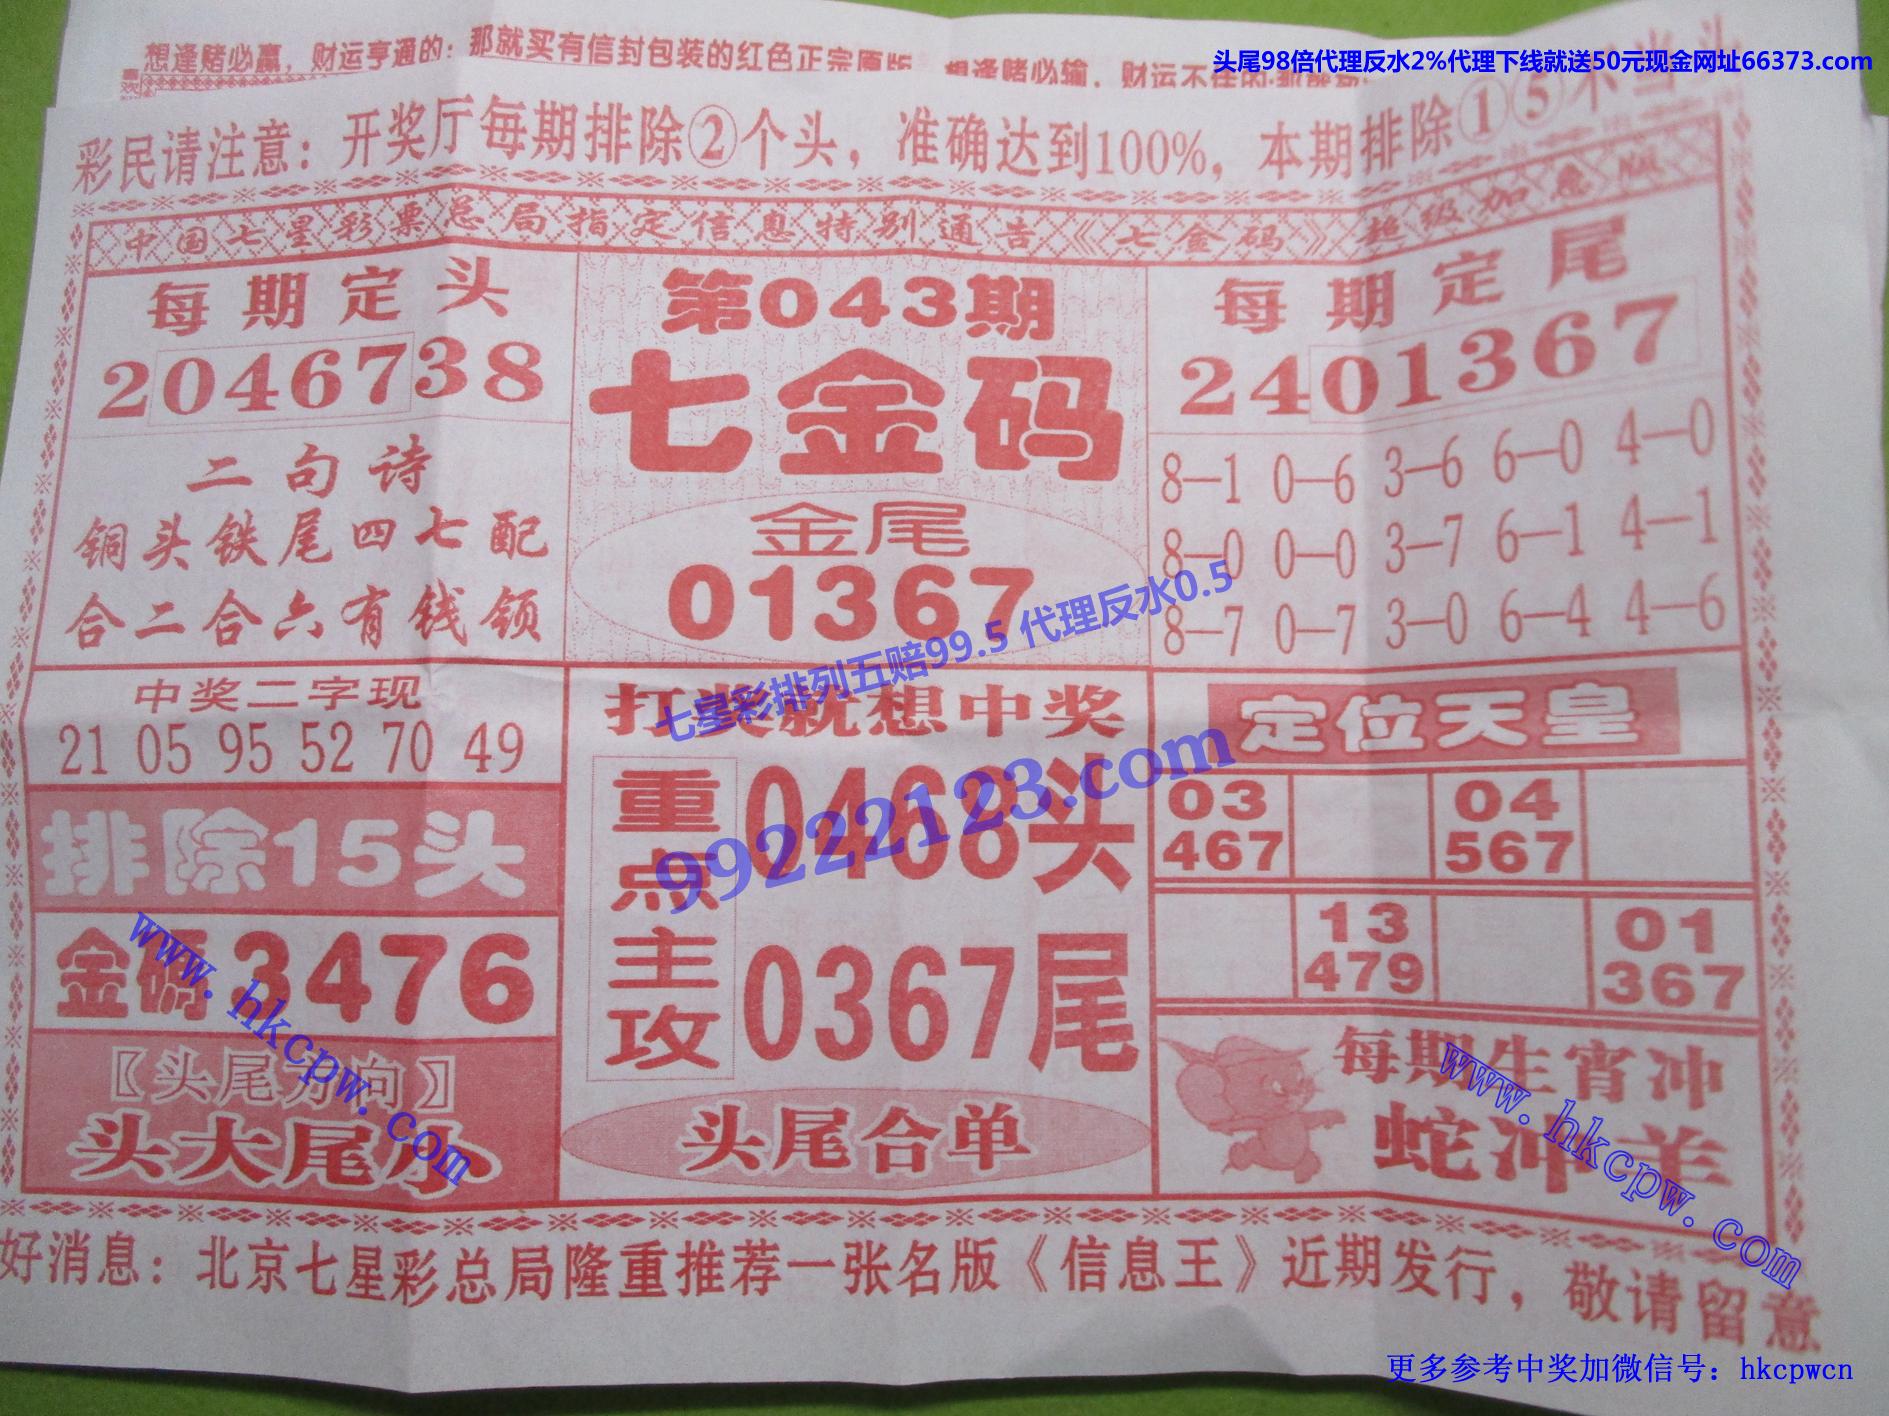 头尾98倍代理反水2%代理下线就送50元现金网址66373.com
想逢赌必赢，财运亨通的：那就买有信封包装的红色正宗原版
想逢赌必输，财运不佳的：那就
彩民请注意：开奖厅每期排除②个头，准确达到100%，本期排除①⑤不当头
中国七星彩票总局指定信息特别通告《七金码》超级加急版
每期定头
204673 8
二句诗
铜头铁尾四七配
合二合六有钱领
第043期
七金码
金尾
01367
每期定尾
24001367
8—1 0—6 3—6 6—0 4—0
8—0 0—0 3—7 6—1 4—1
8—7 0—7 3—0 6—4 4—6
七星彩排列五赔99.5 代理反水0.5
99222123.com
中奖二字现
21 05 95 52 70 49
排除15头
金码 3476
【头尾方向】
头大尾小
打奖就想中奖
重点主攻
0468头
0367尾
头尾合单
定位天皇
03 04
467 567
13 01
479 367
每期生宵冲
蛇冲羊
www.hkcpw.com
www.hkcpw.com
好消息：北京七星彩总局隆重推荐一张名版《信息王》近期发行，敬请留意
更多参考中奖加微信号：hkcpwcn